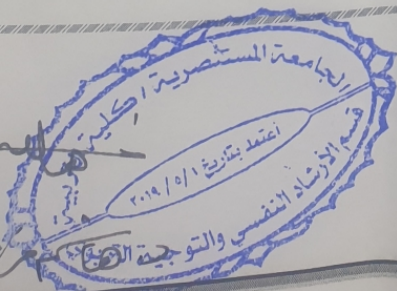 الجامعة المستنصرية / كلية التربية
أعتمد بتاريخ ٢٠١٩/٥/١
قسم الارشاد النفسي والتوجيه التربوي